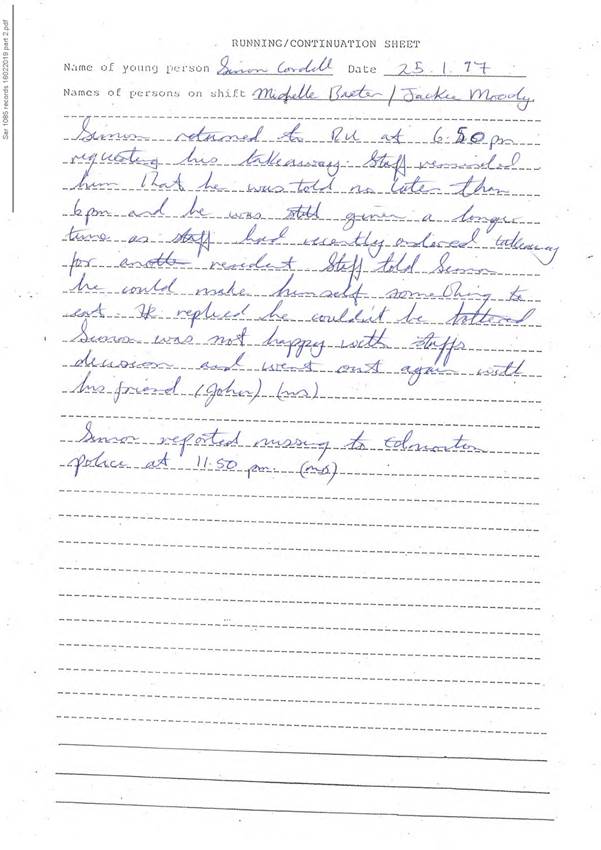 Sar 1085 records 18022019 part 2.pdf
RUNNING/CONTINUATION SHEET
Name of young person Simon Cordell Date 25.1.97
Names of persons on shift Michelle Baxter / Jackie Moody
Simon returned to RU at 6.50 pm
requesting his takeaway. Staff reminded
him that he was told no later than
6pm and he was still given a longer
time as staff had recently ordered takeaway
for another resident Staff told Simon
he could make himself something to
eat. He replied he couldn't be bothered
Simon was not happy with staffs
decision and went out again with
his friend (John)
Simon reported missing to Edmonton
police at 11.50 pm.